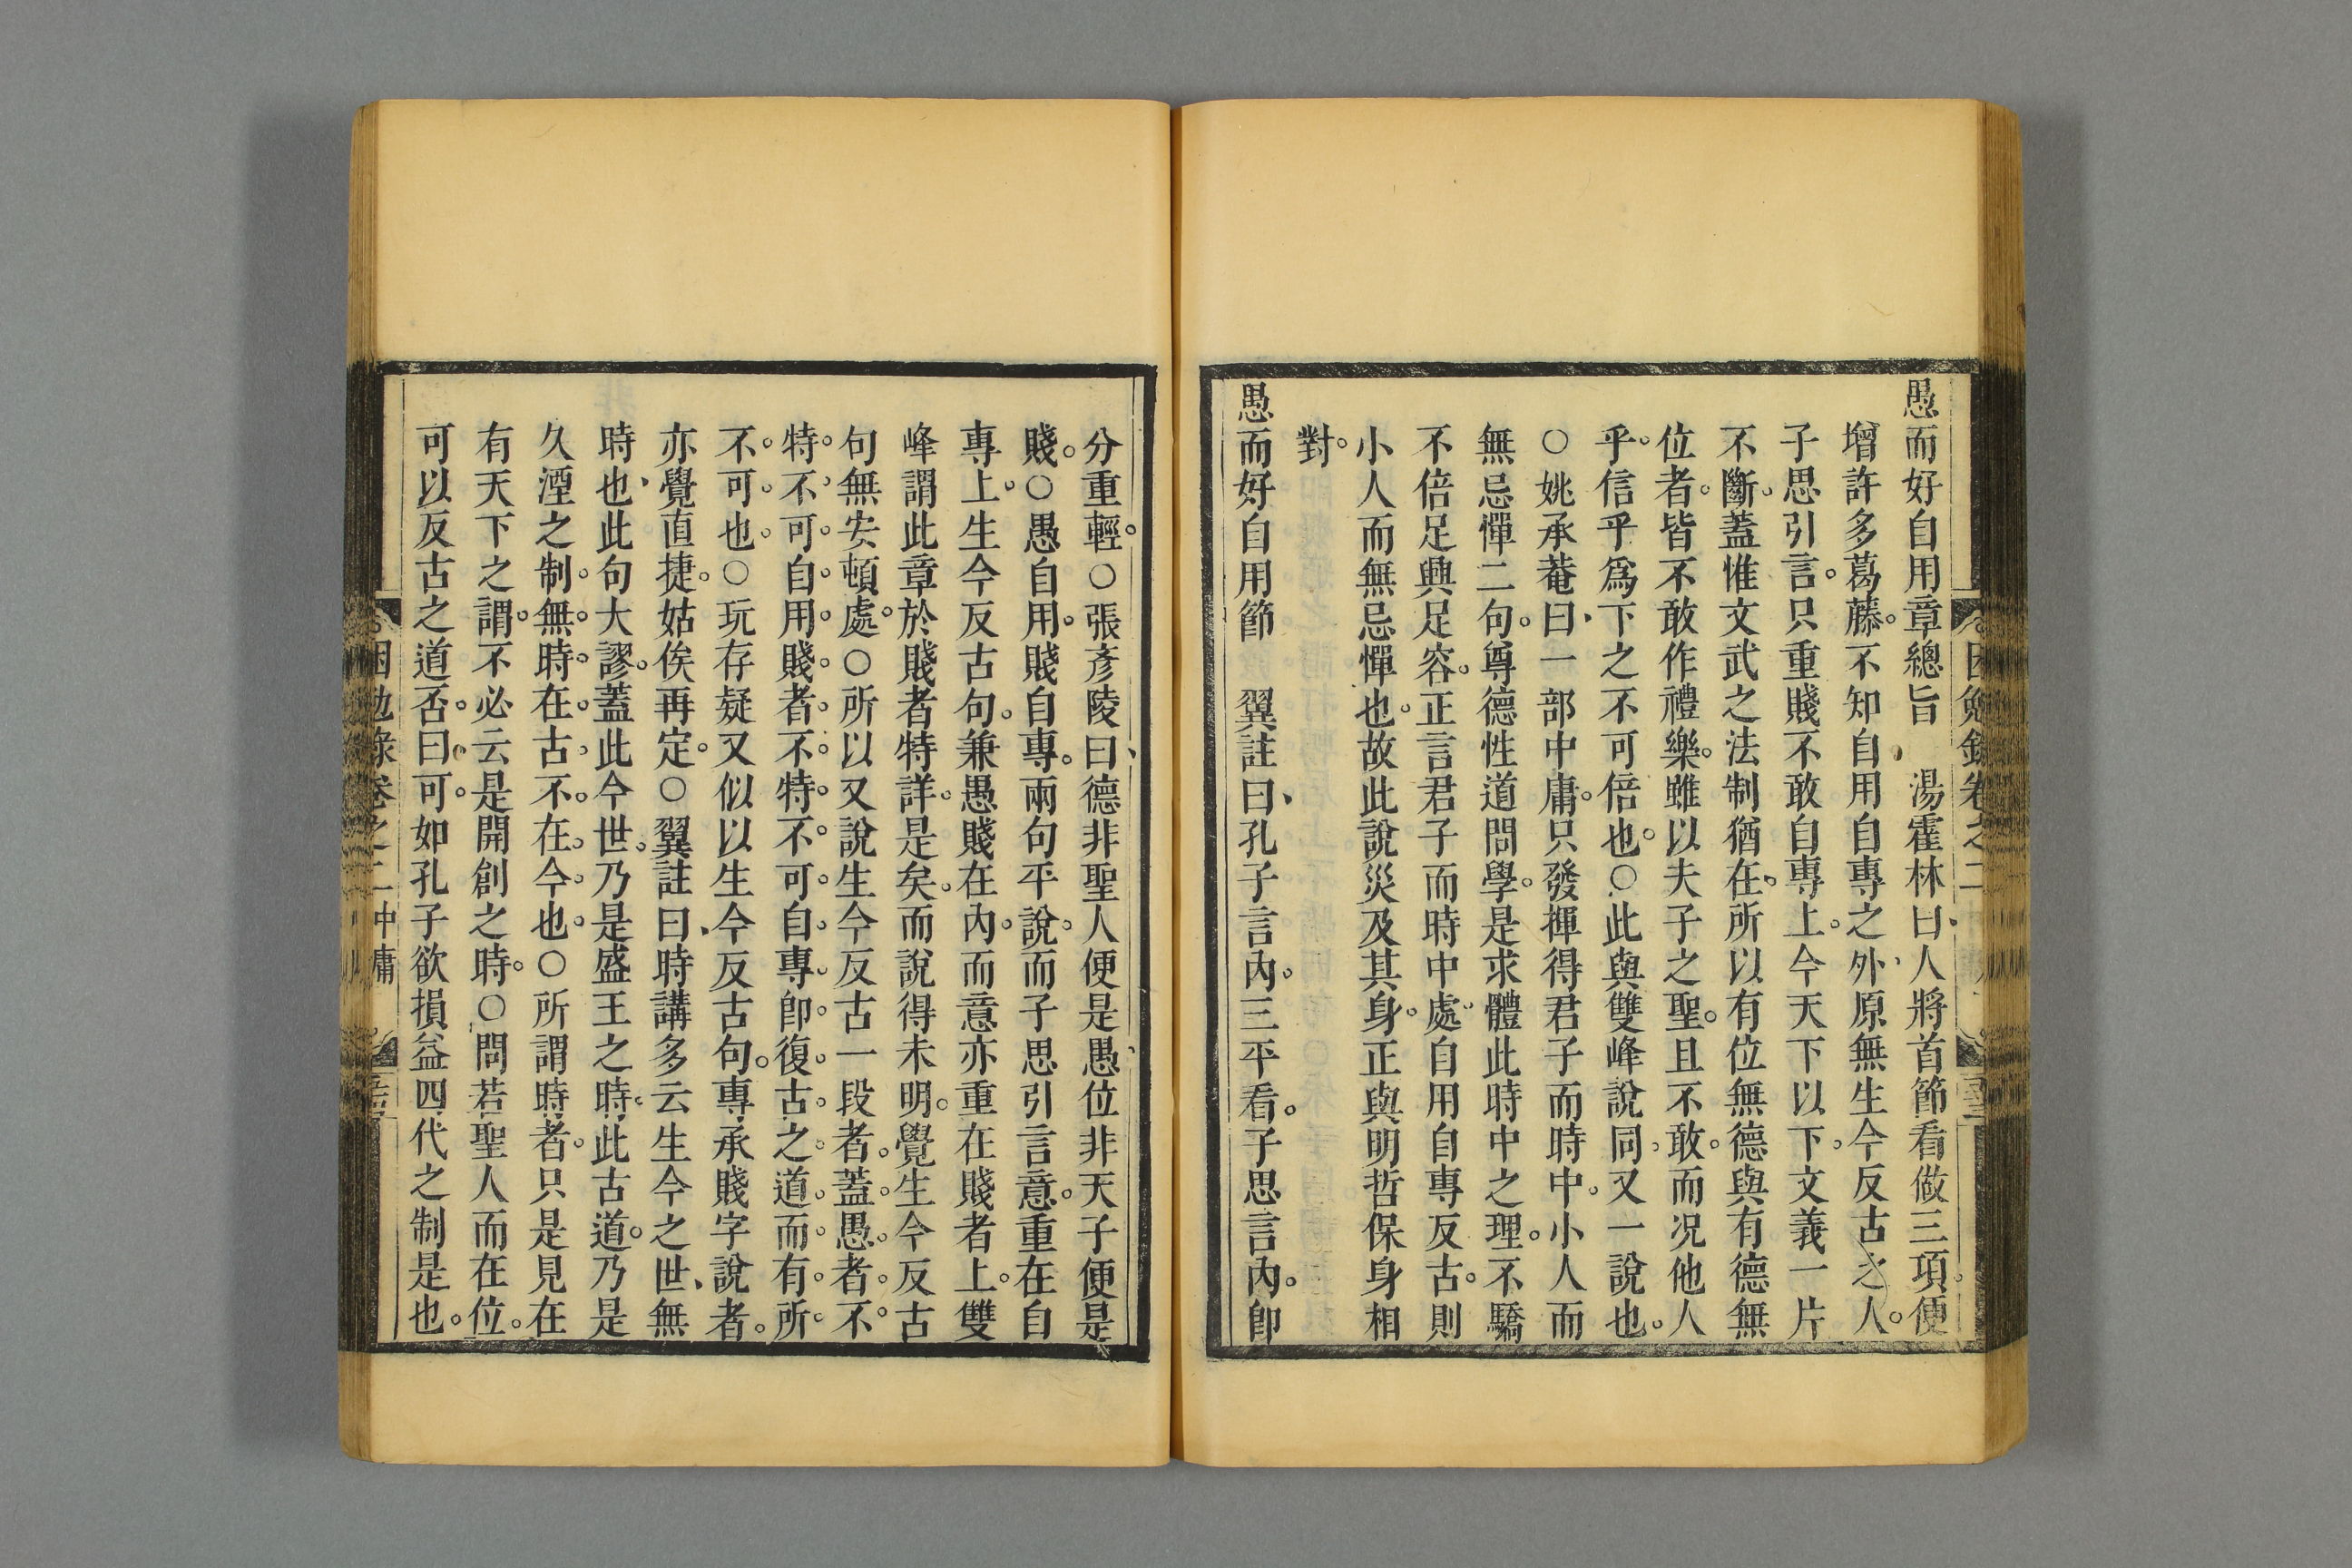 愚而好自用章總旨　湯霍林曰人將首節看做三項便
增許多葛藤。不知自用自專之外原無生今反古之人。
子思引言。只重賤不敢自專上。今天下以下。文義一片
不斷。蓋惟文武之法制猶在。所以有位無德與有德無
位者。皆不敢作禮樂。雖以夫子之聖。且不敢。而况他人
乎。信乎爲下之不可倍也。○此與雙峰說同。又一說也。
○姚承菴曰一部中庸。只發揮得君子而時中。小人而
無忌憚二句。尊德性道問學。是求體此時中之理。不驕
不倍足興足容。正言君子而時中處。自用自專反古。則
小人而無忌憚也。故此說災及其身。正與明哲保身相
對。
愚而好自用節　翼註曰孔子言內。三平看。子思言內。卽
分重輕。○張彥陵曰德非聖人便是愚位非天子便是
賤。○愚自用。賤自專。兩句平說。而子思引言意。重在自
專上。生今反古句。兼愚賤在內。而意亦重在賤者上。雙
峰謂此章於賤者特詳。是矣。而說得未明。覺生今反古
句無安頓處。○所以又說生今反古一段者。蓋愚者。不
特。不可。自用。賤者。不特。不可。自專。卽復古。之道。而有。所
不。可。也。○玩存疑又似以生今反古句。專承賤字說者。
亦覺直捷。姑俟再定。○翼註曰時講多云生今之世無
時也此句大謬。蓋此今世。乃是盛王之時。此古道。乃是
久湮之制。無時。在古。不在。今也。○所謂時者。只是見在
有天下之謂。不必云是開創之時。○問若聖人而在位。
可以反古之道否。曰可。如孔子欲損益四代之制是也。
困勉錄卷之二　中庸